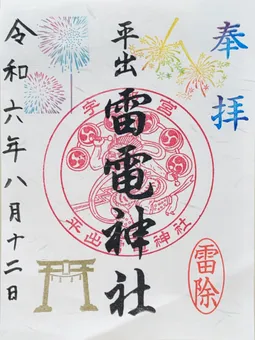 奉拝
平出
雷電神社
令和六年八月十二日
宇都宮
平出雷電神社
雷除